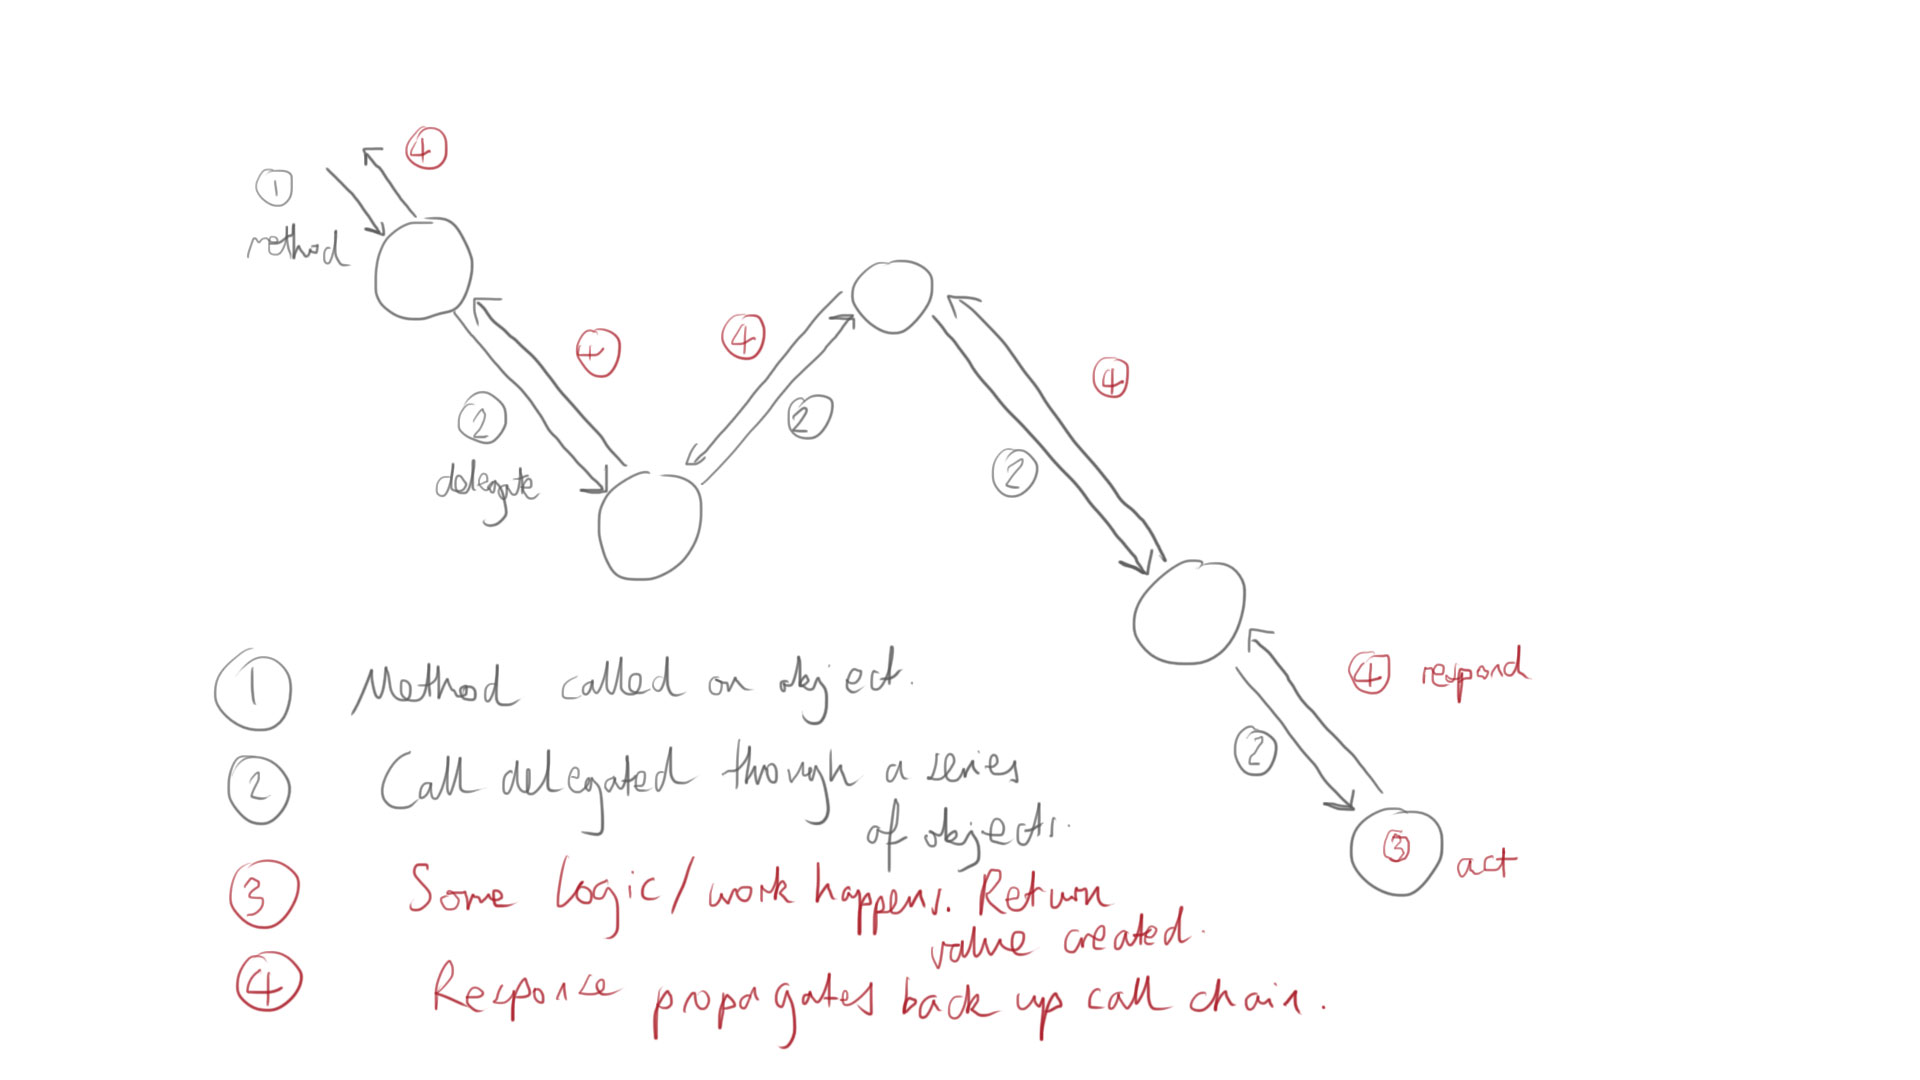 4
1
method
4
4
2
2
delegate
4
2
4 respond
2
3 act
1 Method called on object.
2 Call delegated through a series
of objects.
3 Some logic/work happens. Return
value created.
4 Response propagates back up call chain.